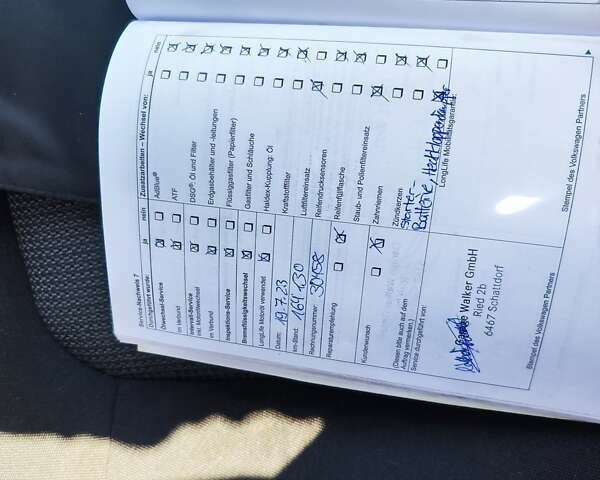 Service-Nachweis 7
Durchgeführt wurde: ja nein
Ölwechsel-Service
im Verbund
Intervall-Service
inkl. Motorölwechsel
im Verbund
Inspektions-Service
Bremsflüssigkeitswechsel
LongLife Motoröl verwendet
Datum: 19.7.23
km-Stand: 164 130
Rechnungsnummer: 30458
Reparaturempfehlung
Kundenwunsch
(Diesen bitte auch auf dem
Auftrag vermerken.)
Service durchgeführt von:
Walker GmbH
Ried 2b
6467 Schattdorf
Stempel des Volkswagen Partners
Zusatzarbeiten – Wechsel von: ja nein
AdBlue®
ATF
DSG®: Öl und Filter
Erdgasbehälter und -leitungen
Flüssiggasfilter (Papierfilter)
Gasfilter und Schläuche
Haldex-Kupplung: Öl
Kraftstofffilter
Luftfiltereinsatz
Reifendrucksensoren
Reifenfüllflasche
Staub- und Pollenfiltereinsatz
Zahnriemen
Zündkerzen
Starter-
Batterie, Heckklappendämpfer
LongLife Mobilitätsgarantie:
Stempel des Volkswagen Partners